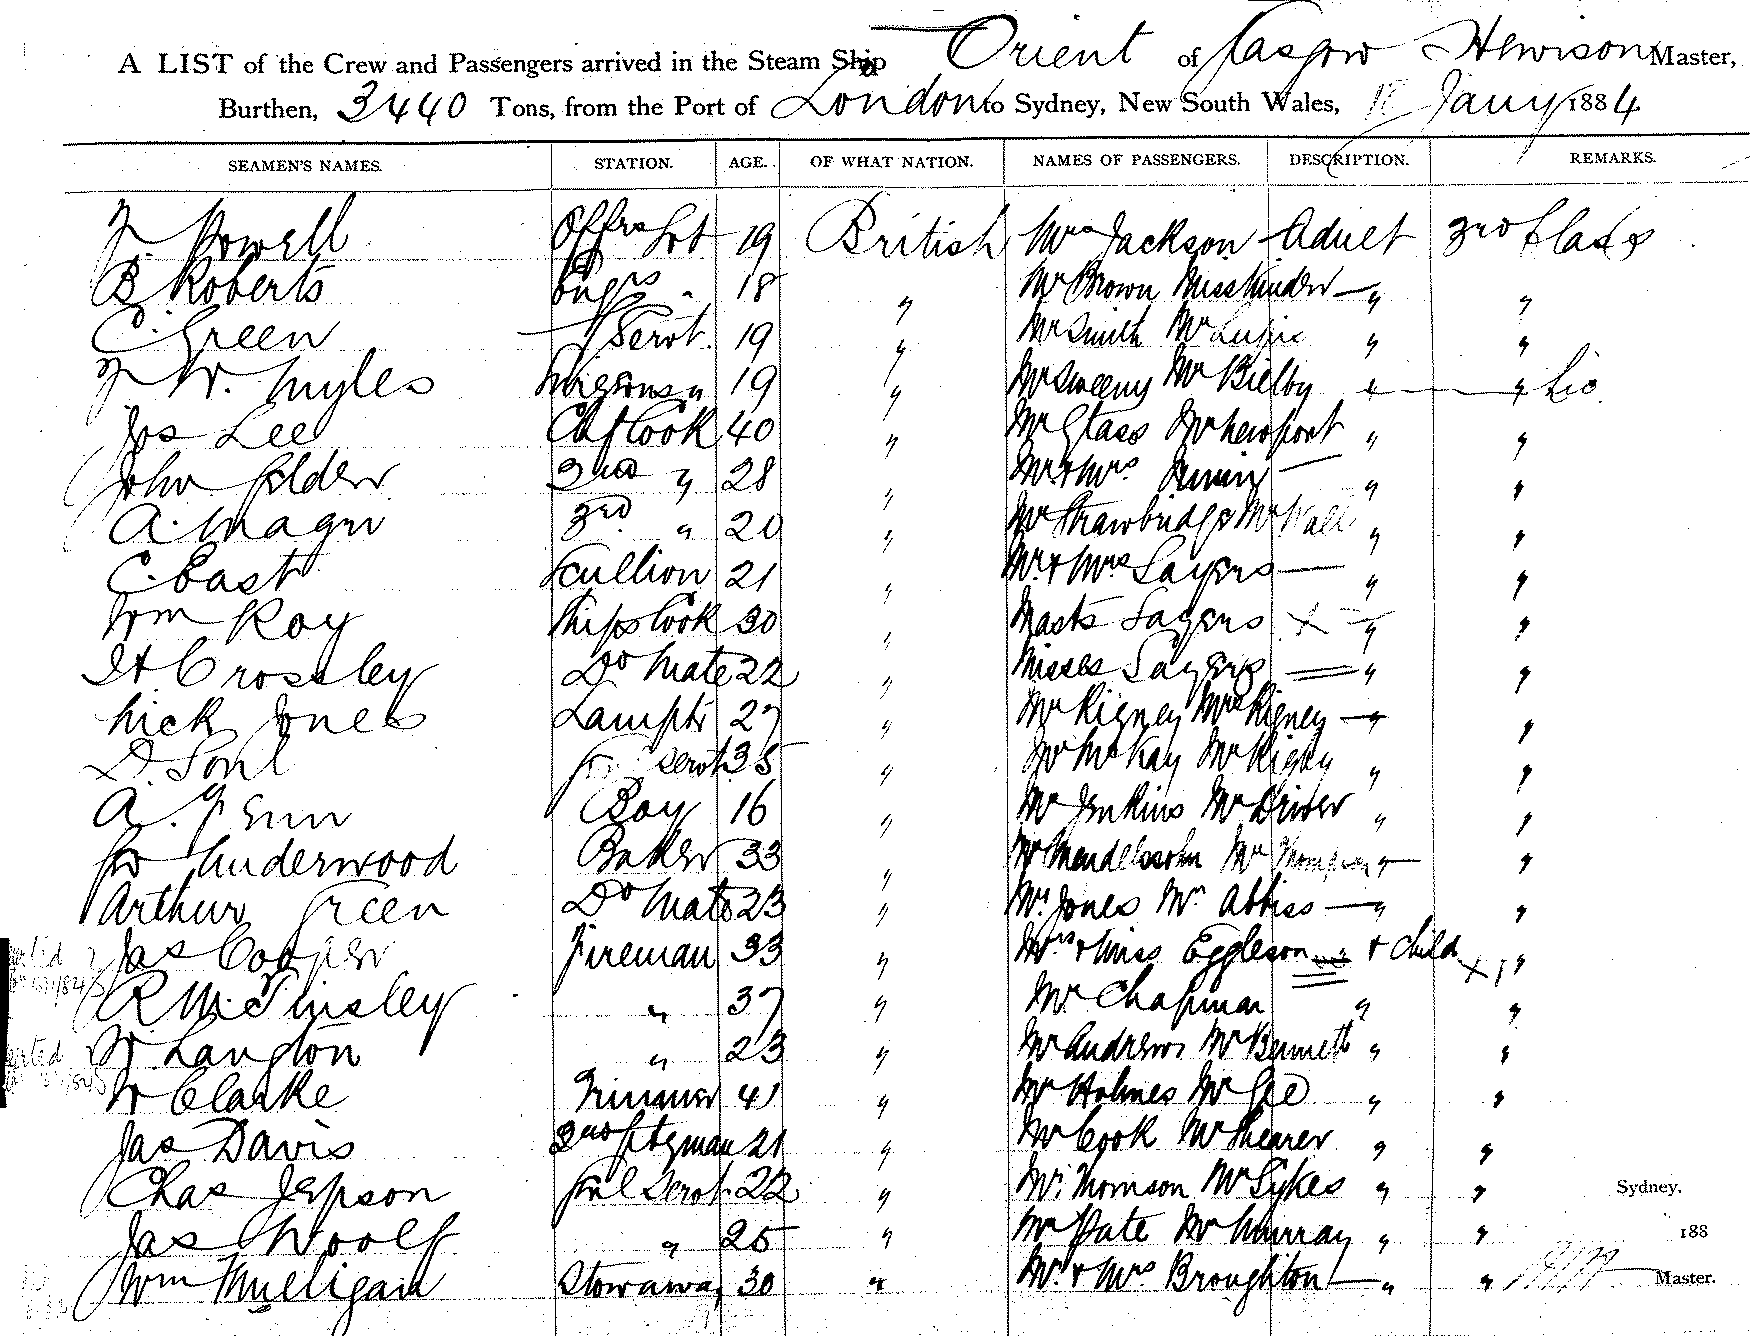 A LIST of the Crew and Passengers arrived in the Steam Ship Orient of Glasgow Hewison Master,
Burthen, 3440 Tons, from the Port of London to Sydney, New South Wales, Jany 1884
SEAMEN'S NAMES. STATION. AGE. OF WHAT NATION. NAMES OF PASSENGERS. DESCRIPTION. REMARKS.
Powell 19 British Mrs Jackson Adult 3rd Class
B. Roberts Engrs " 18 " Mr Brown Miss Kinder — " "
C. Green Servt. 19 " Mr Smith Mr " "
W. Myles " 19 " Mr Sweeny Mr Bielby " "
Jos Lee Chf Cook 40 " Mr Glass Mr Newport " "
John Elder 2nd " 28 " Mr & Mrs — " "
A. Mager 3rd " 20 " Mr Strawbridge Mr Wall " "
C. East Scullion 21 " Mr & Mrs Sayers — " "
Wm Roy Ships Cook 30 " Masts Sayers X — " "
H Crossley Do Mate 22 " Misses Sayers = " "
Nick Jones Lamptr 27 " Mr Rigney Mrs Rigney — " "
D. Servt. 35 " Mr McKay Mr Rigby " "
A. Fenn Boy 16 " Mr Jenkins Mr Driver " "
Underwood Baker 33 " Mr Mendelssohn Mr Thompson " "
Arthur Green Do Mate 23 " Mr. Jones Mr. Abbiss — " "
Jas Cooper Fireman 33 " Mrs & Miss Eggleson " & Child X "
R. McTinsley " 37 " Mr Chapman " "
W. Langton " 23 " Mr Andrews Mr Bennett " "
W Clarke Trimmer 41 " Mr Holmes Mr Gee " "
Jas Davis 2nd 21 " Mr Cook Mr Shearer " "
Chas Jepson Genl Servt. 22 " Mr. Thomson Mr Sykes " " Sydney.
Jas Woolf " 25 " Mr Pate Mr Murray " " 188
Wm Mulligan Stowaway 30 " Mr. & Mrs Broughton — " " Master.